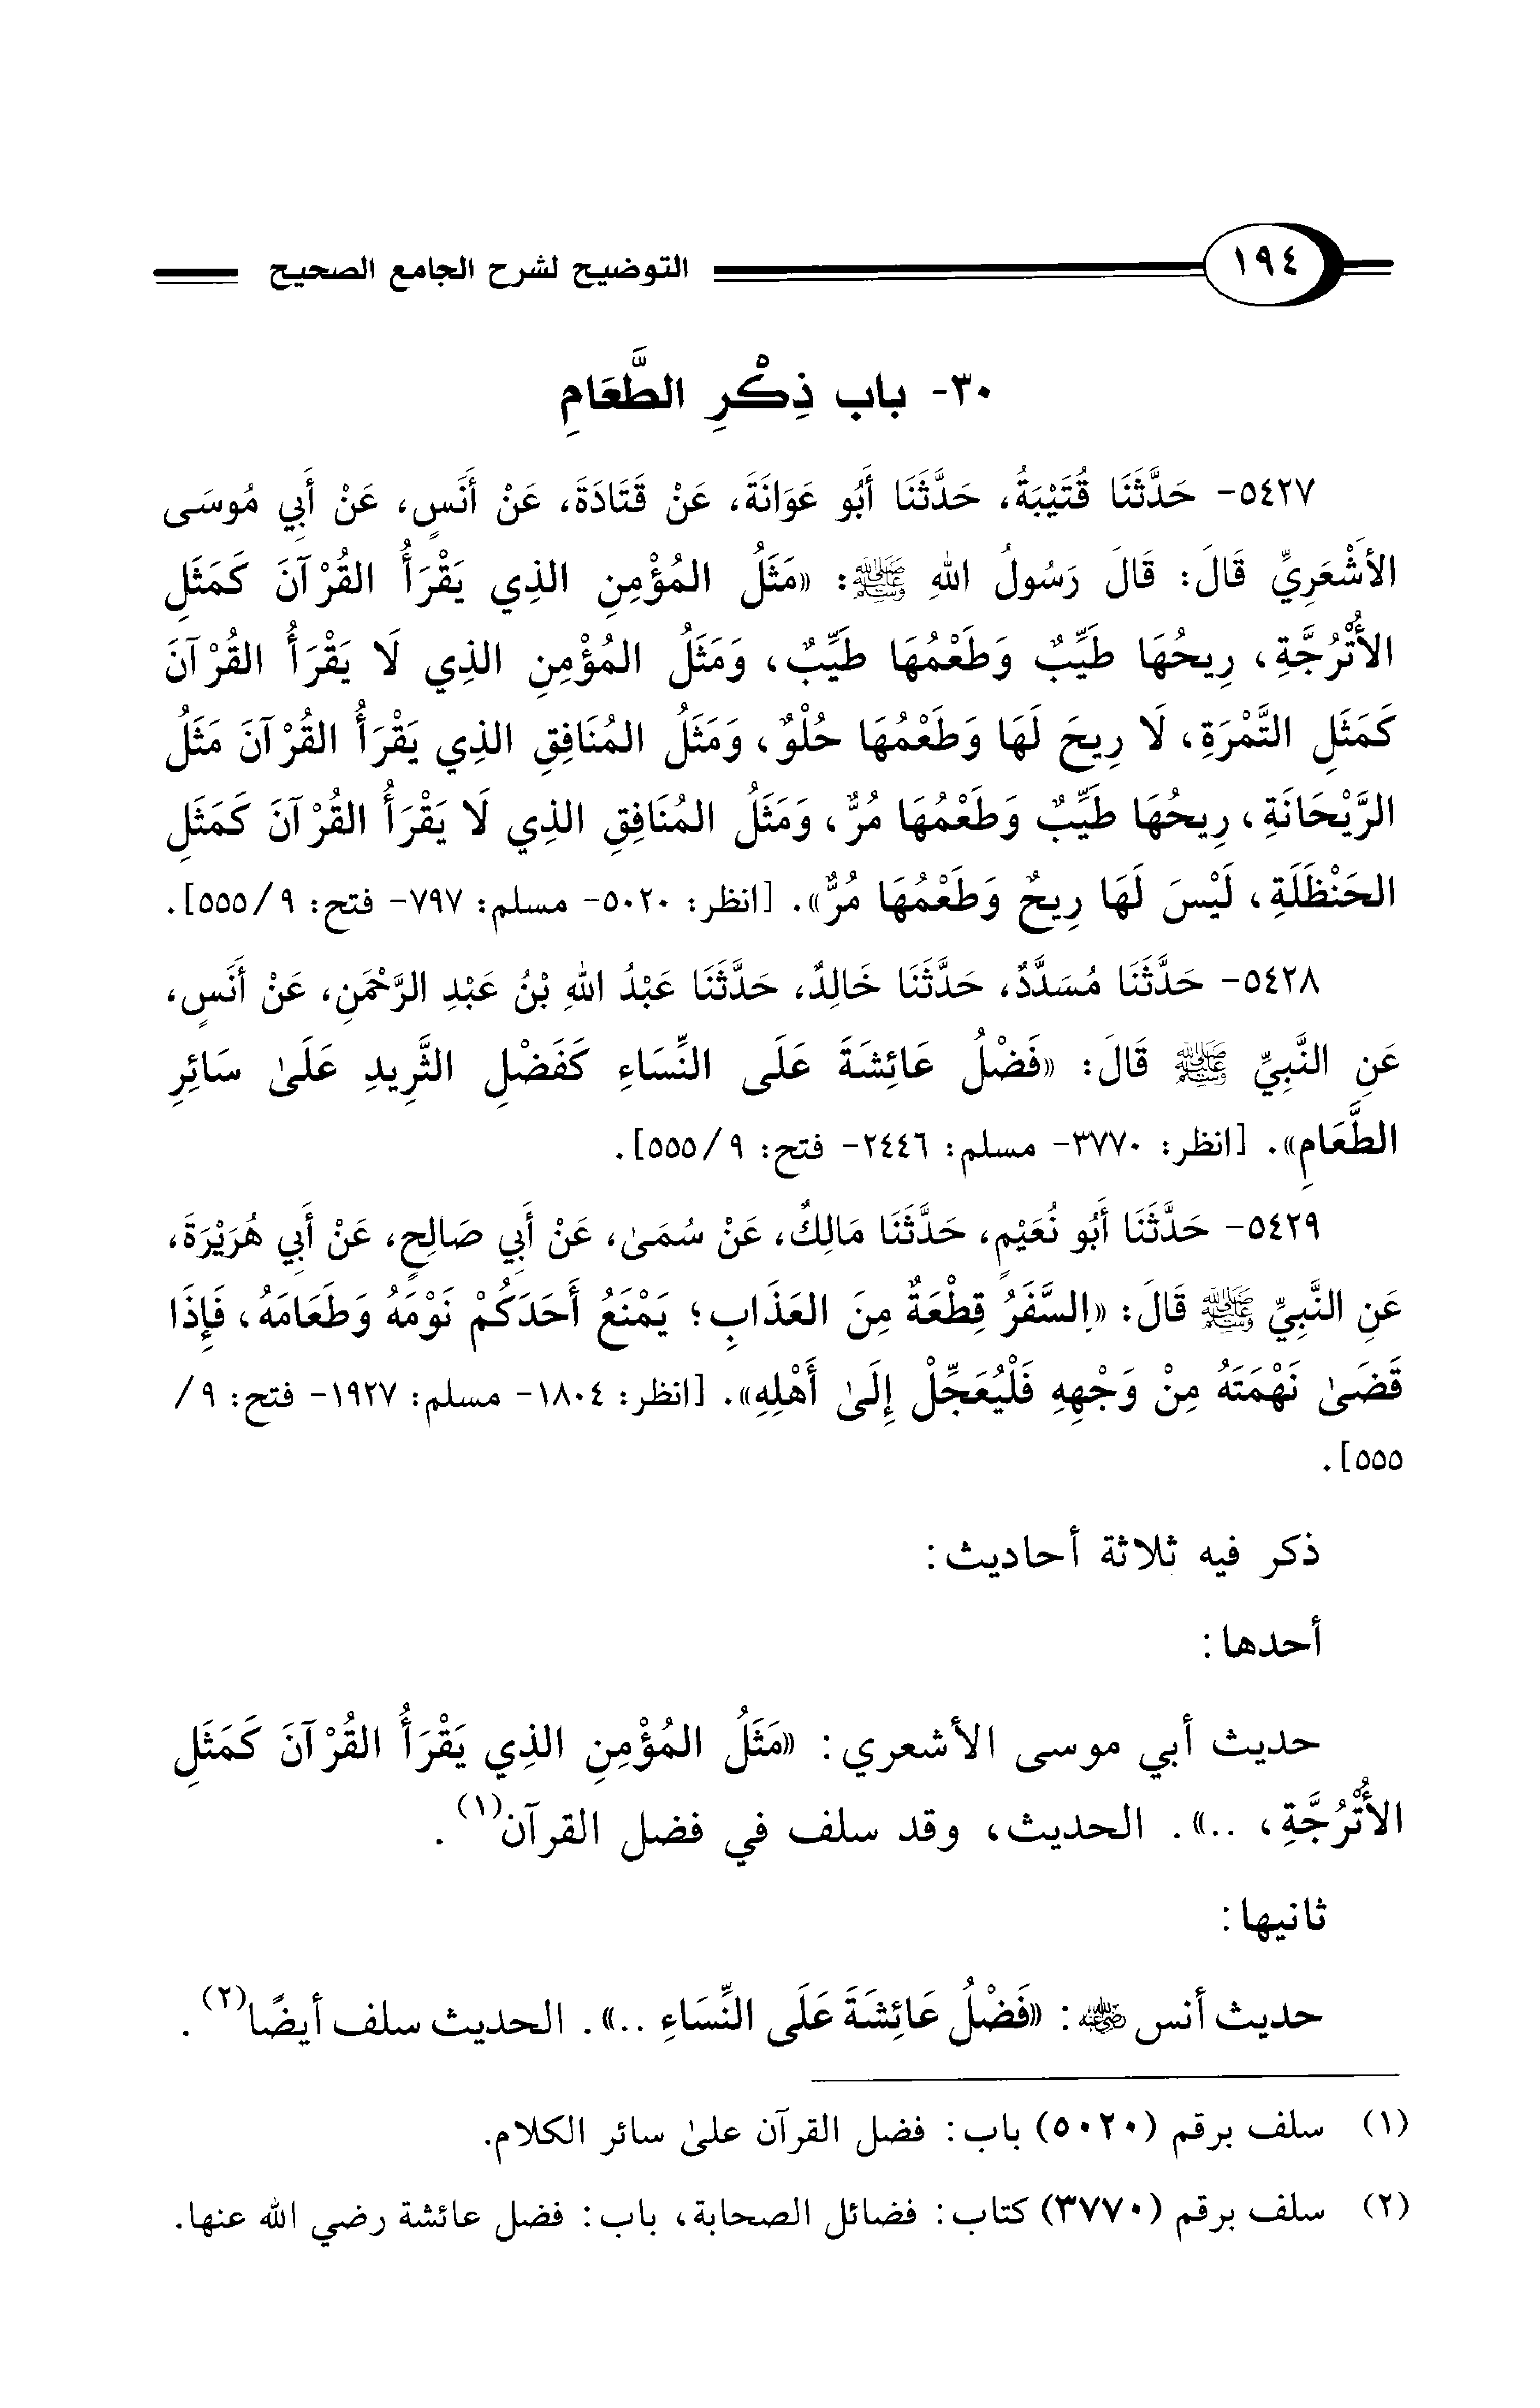 ١٩٤
التوضيح لشرح الجامع الصحيح
٣٠- باب ذِكْرِ الطَّعَامِ
٥٤٢٧- حَدَّثَنَا قُتَيْبَةُ، حَدَّثَنَا أَبُو عَوَانَةَ، عَنْ قَتَادَةَ، عَنْ أَنَسٍ، عَنْ أَبِي مُوسَى
الأَشْعَرِيِّ قَالَ: قَالَ رَسُولُ اللهِ ﷺ: «مَثَلُ المُؤْمِنِ الذِي يَقْرَأُ القُرْآنَ كَمَثَلِ
الأُتْرُجَّةِ، رِيحُهَا طَيِّبٌ وَطَعْمُهَا طَيِّبٌ، وَمَثَلُ المُؤْمِنِ الذِي لَا يَقْرَأُ القُرْآنَ
كَمَثَلِ التَّمْرَةِ، لَا رِيحَ لَهَا وَطَعْمُهَا حُلْوٌ، وَمَثَلُ المُنَافِقِ الذِي يَقْرَأُ القُرْآنَ مَثَلُ
الرَّيْحَانَةِ، رِيحُهَا طَيِّبٌ وَطَعْمُهَا مُرٌّ، وَمَثَلُ المُنَافِقِ الذِي لَا يَقْرَأُ القُرْآنَ كَمَثَلِ
الحَنْظَلَةِ، لَيْسَ لَهَا رِيحٌ وَطَعْمُهَا مُرٌّ». [انظر: ٥٠٢٠- مسلم: ٧٩٧- فتح: ٩/ ٥٥٥].
٥٤٢٨- حَدَّثَنَا مُسَدَّدٌ، حَدَّثَنَا خَالِدٌ، حَدَّثَنَا عَبْدُ اللهِ بْنُ عَبْدِ الرَّحْمَنِ، عَنْ أَنَسٍ،
عَنِ النَّبِيِّ ﷺ قَالَ: «فَضْلُ عَائِشَةَ عَلَى النِّسَاءِ كَفَضْلِ الثَّرِيدِ عَلَىٰ سَائِرِ
الطَّعَامِ». [انظر: ٣٧٧٠- مسلم: ٢٤٤٦- فتح: ٩/ ٥٥٥].
٥٤٢٩- حَدَّثَنَا أَبُو نُعَيْمٍ، حَدَّثَنَا مَالِكٌ، عَنْ سُمَىٰ، عَنْ أَبِي صَالِحٍ، عَنْ أَبِي هُرَيْرَةَ،
عَنِ النَّبِيِّ ﷺ قَالَ: «اِلسَّفَرُ قِطْعَةٌ مِنَ العَذَابِ؛ يَمْنَعُ أَحَدَكُمْ نَوْمَهُ وَطَعَامَهُ، فَإِذَا
قَضَىٰ نَهْمَتَهُ مِنْ وَجْهِهِ فَلْيُعَجِّلْ إِلَىٰ أَهْلِهِ». [انظر: ١٨٠٤- مسلم: ١٩٢٧- فتح: ٩/
٥٥٥].
ذكر فيه ثلاثة أحاديث:
أحدها:
حديث أبي موسى الأشعري: «مَثَلُ المُؤْمِنِ الذِي يَقْرَأُ القُرْآنَ كَمَثَلِ
الأُتْرُجَّةِ، ..». الحديث، وقد سلف في فضل القرآن(١).
ثانيها:
حديث أنس رضي الله عنه: «فَضْلُ عَائِشَةَ عَلَى النِّسَاءِ ..». الحديث سلف أيضًا(٢).
(١) سلف برقم (٥٠٢٠) باب: فضل القرآن علىٰ سائر الكلام.
(٢) سلف برقم (٣٧٧٠) كتاب: فضائل الصحابة، باب: فضل عائشة رضي الله عنها.